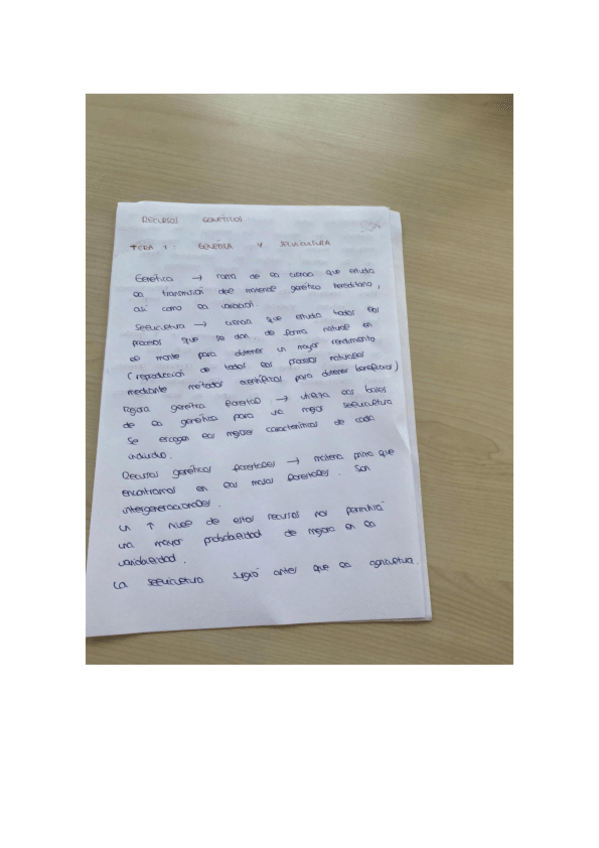 RECURSOS GENÉTICOS
TEMA 1: GENÉTICA Y SELVICULTURA
Genética → rama de la ciencia que estudia
la transmisión del material genético hereditario,
así como la variación.
Selvicultura → ciencia que estudia todos los
procesos que se dan de forma natural en
el monte para obtener un mayor rendimiento
(reproducción de todos los procesos naturales
mediante métodos científicos para obtener beneficios)
Mejora genética forestal → utiliza las bases
de la genética para una mejor selvicultura
Se escogen las mejores características de cada
individuo.
Recursos genéticos forestales → materia prima que
encontramos en las masas forestales. Son
intergeneracionales.
Un ↑ nivel de estos recursos nos permitirá
una mayor probabilidad de mejora en la
variabilidad.
La selvicultura surgió antes que la agricultura.